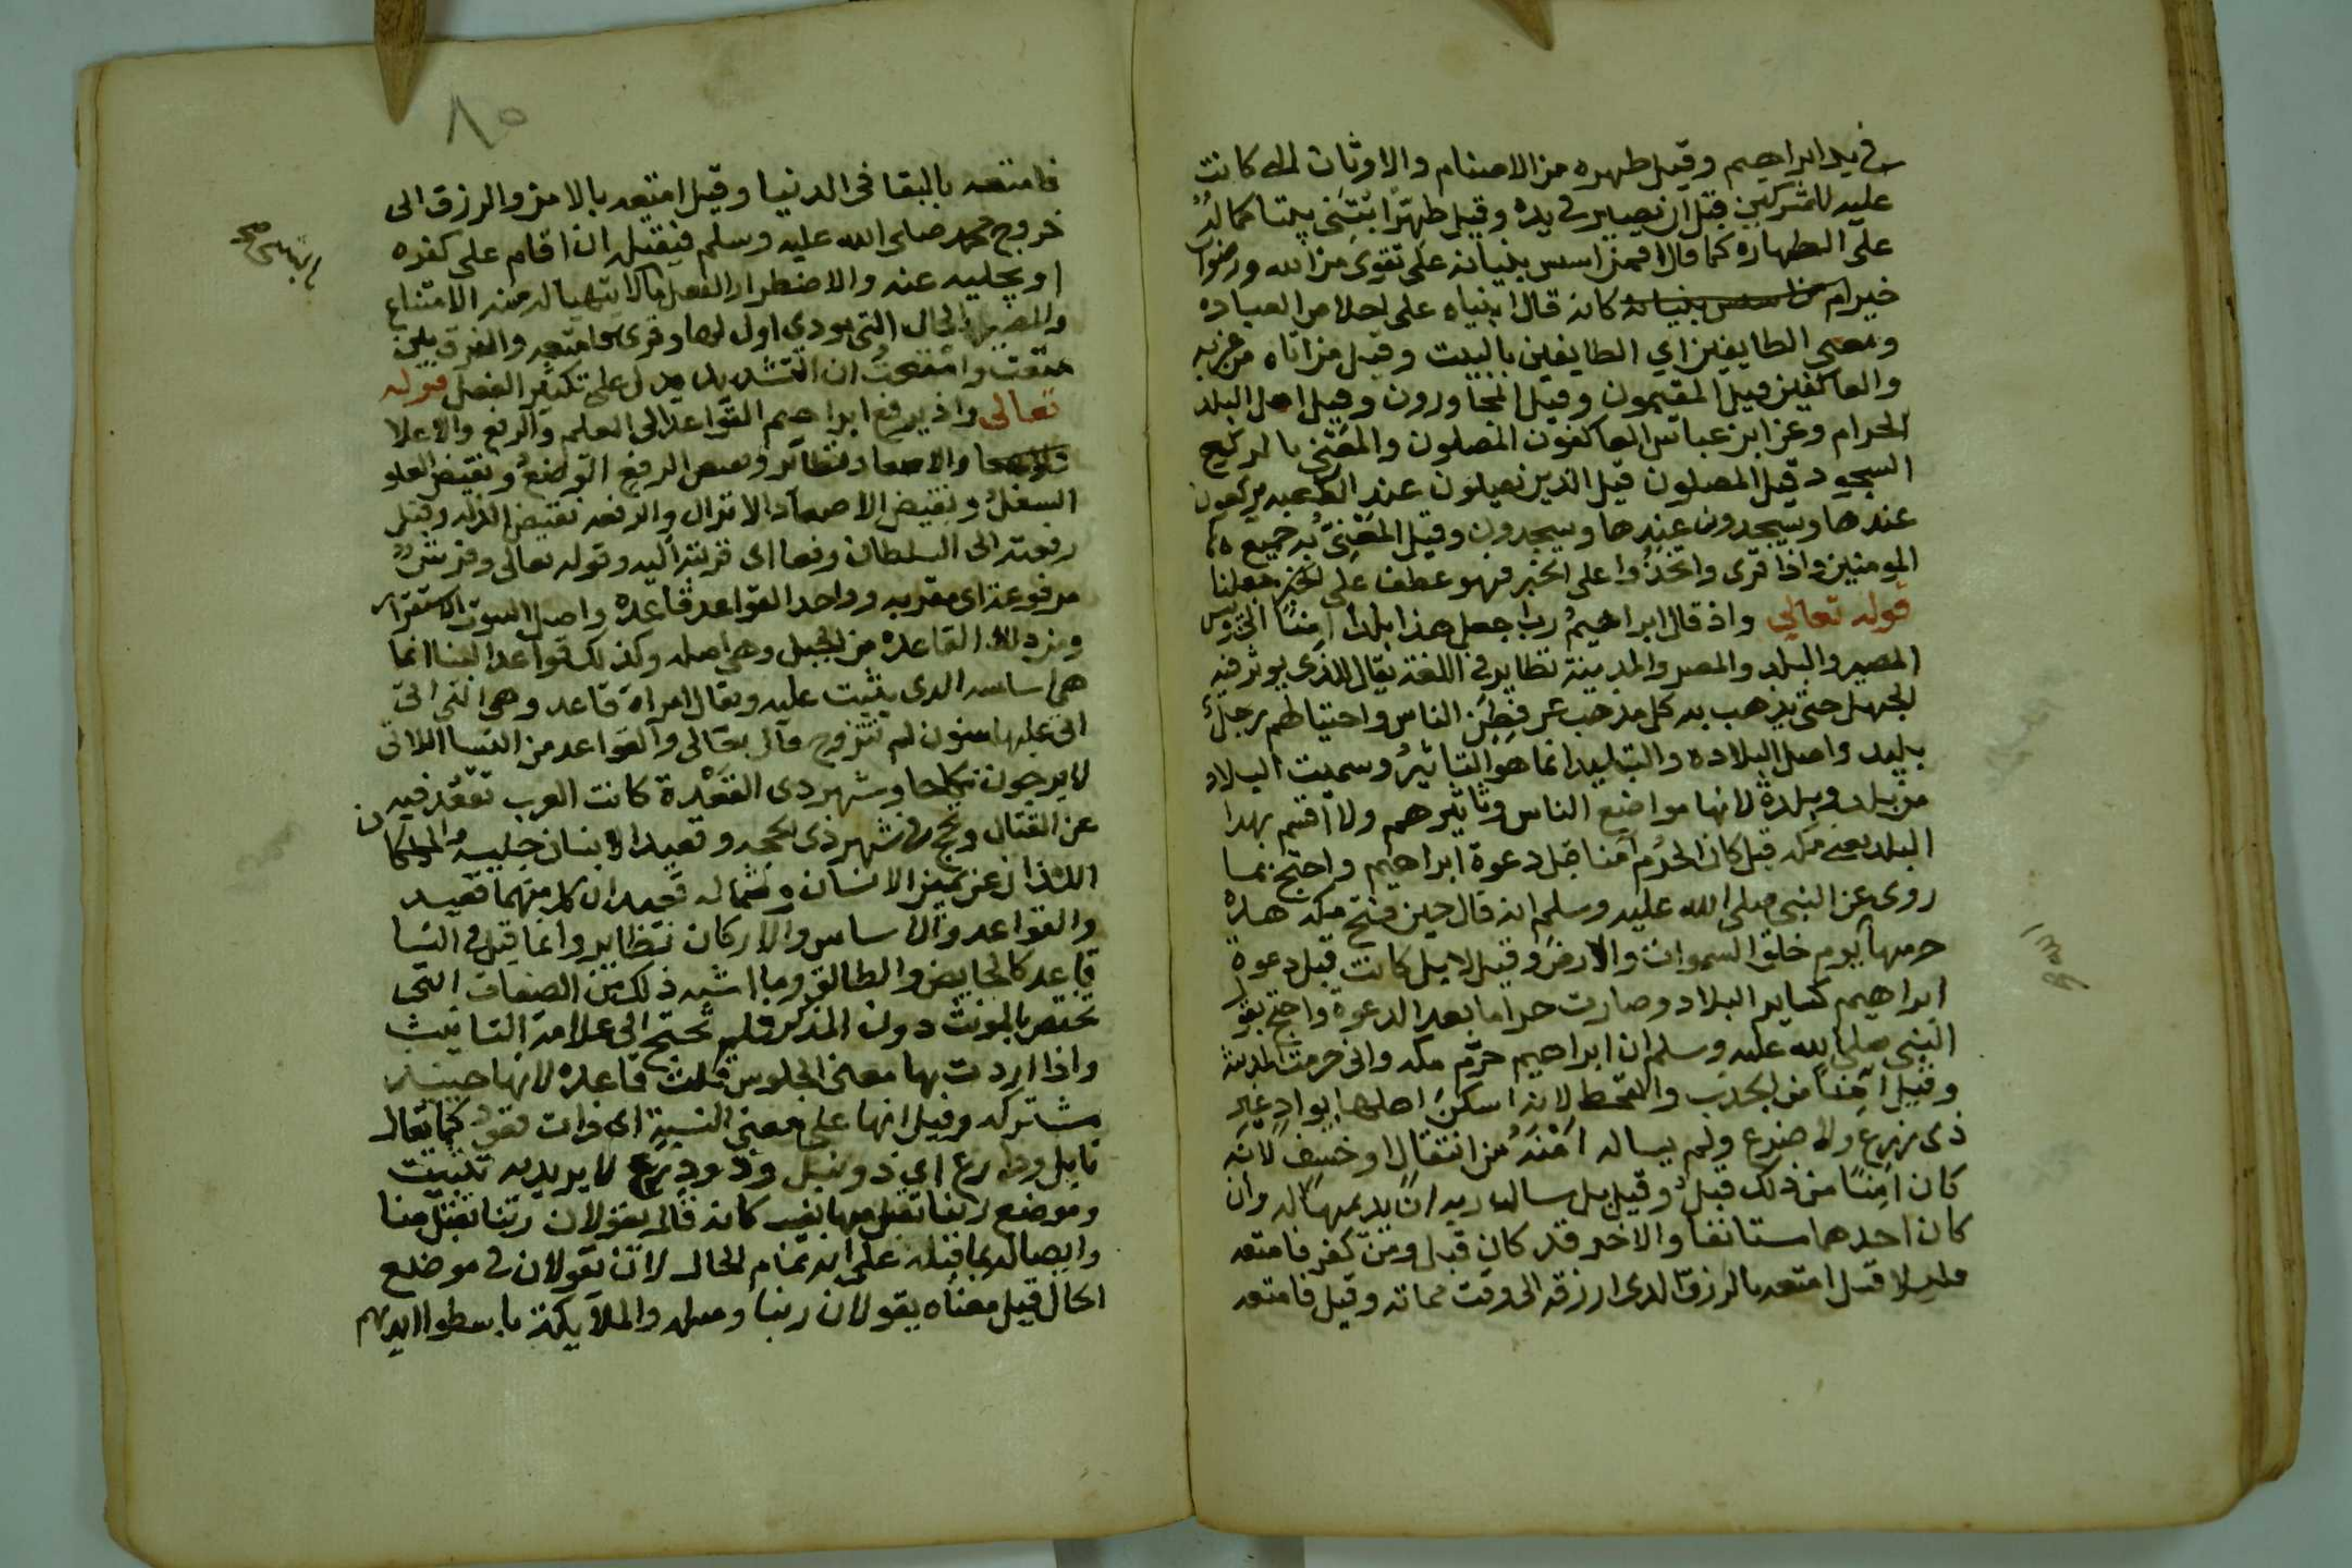 في يد ابراهيم وقيل طهره من الاصنام والاوثان التي كانت
عليه للمشركين قبل ان يصير في يده وقيل طهرا ابتني بيتا
على الطهارة كما قال افمن اسس بنيانه على تقوى من الله ورضوان
خير ام من اسس بنيانه كانه قال ابنياه على العباده
ومعنى الطايفين اي الطايفين بالبيت وقيل من اتاه من غربه
والعاكفين قيل المقيمون وقيل المجاورون وقيل اهل البلد
الحرام وعن ابن عباس العاكفون المصلون والمعني بالركع
السجود قيل المصلون قيل الذين يصلون عند الكعبه يركعون
عندها ويسجدون عندها ويسجدون وقيل المعني به جميع
المومنين واذا قرى واتخذوا على الخبر فهو عطف على جعلنا
قوله تعالى واذ قال ابراهيم رب اجعل هذا بلدا امنا
المصير والبلد والمصر والمدينة نظاير في اللغة يقال للذى يوثر فيه
الجهل حتى يذهب به كل مذهب عن فطن الناس واحتياطهم رجل
بليد واصل البلادة والتبليد انما هو التاثير وسميت البلاد
من بلد وبلدة لانها مواضع الناس وتاثيرهم ولا اقسم بهدا
البلد يعني مكه قيل كان الحرم امنا قبل دعوة ابراهيم واحتج بما
روى عن النبي صلى الله عليه وسلم انه قال حين فتح مكه هذه
حرمها يوم خلق السموات والارض وقيل لا بل كانت قبل دعوة
ابراهيم كساير البلاد وصارت حراما بعد الدعوة واحتج بقول
النبي صلى الله عليه وسلم ان ابراهيم حرم مكه واني حرمت المدينة
وقيل امنا من الجدب والقحط لانه اسكن اهلها بواد غير
ذى زرع ولا ضرع ولم يساله امنه من انتقال او خسف لانه
كان امنا من ذلك قبل وقيل بل ساله ربه ان يديمهما له وان
كان احدهما مستانفا والاخر قد كان قبل ومن كفر فامتعه
قليلا قيل امتعه بالرزق الدى ارزقه الى وقت مماته وقيل فامتعه
٨٥
فامتعه بالبقا فى الدنيا وقيل امتعه بالامن والرزق الى
خروج محمد صلى الله عليه وسلم فيقتله ان اقام على كفره
او يجليه عنه والاضطرار الفعل مالا يتهيا له منه الامتناع
والمصير الحال التى يودي اول لها وقرى فامتعه والفرق بين
متعت وامتعت ان التشديد يدل على تكثير الفعل قوله
تعالى واذ يرفع ابراهيم القواعد الى العلم والرفع والاعلا
والاصعاد نظاير ونقيض الرفع الوضع ونقيض العلو
السفل ونقيض الاصعاد الانزال والرفعه نقيض الذله وقيل
رفعته الى السلطان رفعا اى قربته اليه وقوله تعالى وفرش
مرفوعة اى مقربه وواحد القواعد قاعده واصل الاستقرار
ومن ذلك القاعدة من الجبل وهي اصله وكذلك قواعد البنا انما
هي اساسه الدى يثبت عليه ويقال امراة قاعد وهي التي
اتى عليها سنون لم تتزوج قال تعالى والقواعد من النسا اللاتى
لا يرجون نكاحا وشهر ذى القعدة كانت العرب تقعد فيه
عن القتال وتحج في شهر ذى الحجه وقعيد الانسان جليسه والملكان
اللذان عن يمين الانسان وشماله قعيدان كل منهما قعيد
والقواعد والاساس والاركان نظاير وانما قيل في النسا
قاعد كالحايض والطالق وما اشبه ذلك من الصفات التى
تختص بالمونث دون المذكر فلم تحتج الى علامة التانيث
واذا اردت بها معنى الجلوس قلت قاعده لانها حينيذ
مشتركه وقيل انها على معنى النسبة اى ذات قعود كما يقال
نابل ودارع اي ذو نبل وذو درع لا يريد به تثبيت
وموضع ربنا تقبل منها نصب كانه قال يقولان ربنا تقبل منا
واتصاله بما قبله على انه تمام الحال لان يقولان في موضع
الحال قيل معناه يقولان ربنا ومثله والملايكة باسطوا ايديهم